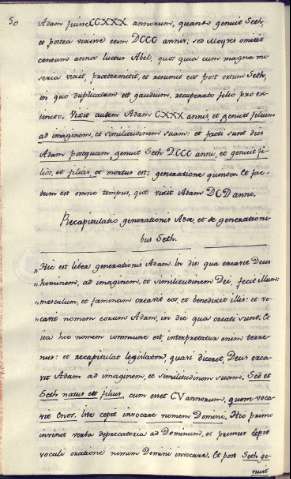 50
Adam fuisse CCXXX annorum, quando genuit Seth,
et postea vixisse eum DCCC annis, sed Moyses omisit
centum annos luctus Abel, quos quia cum magna mo-
eroris vixit, praetermisit, et numerat eos post ortum Seth,
in quo duplicatum est gaudium, recuperato filio pro ex-
tincto. Vixit autem Adam CXXX annis, et genuit filium
ad imaginem, et similitudinem suam: et facti sunt dies
Adam postquam genuit Seth DCCC anni, et genuit fi-
lios, et filias, et mortuus est: generatione quidem et fac-
tum est omne tempus, quod vixit Adam DCD anni.
Recapitulatio generationis Adae et de generationi-
bus Seth.
„Hic est liber generationis Adam. In die qua creavit Deus
hominem, ad imaginem, et similitudinem Dei fecit illum:
masculum, et faeminam creavit eos, et benedixit illis: et vo-
cavit nomen eorum Adam, in die qua creati sunt. E
va hoc nomen commune est, interpretatur enim terre-
nus: et recapitulat legislatorem, quare diceret, Deus creavit
Adam ad imaginem, et similitudinem suam. Sed et
Seth natus est filius, cum esset CV annorum, quem voca-
vit Enos. Iste cepit invocare nomen Domini. Hic primo
invenit verba deprecatoria ad Dominum, et primus cepit
vocali oratione nomen Domini invocare. Et post Seth ge-
nuit